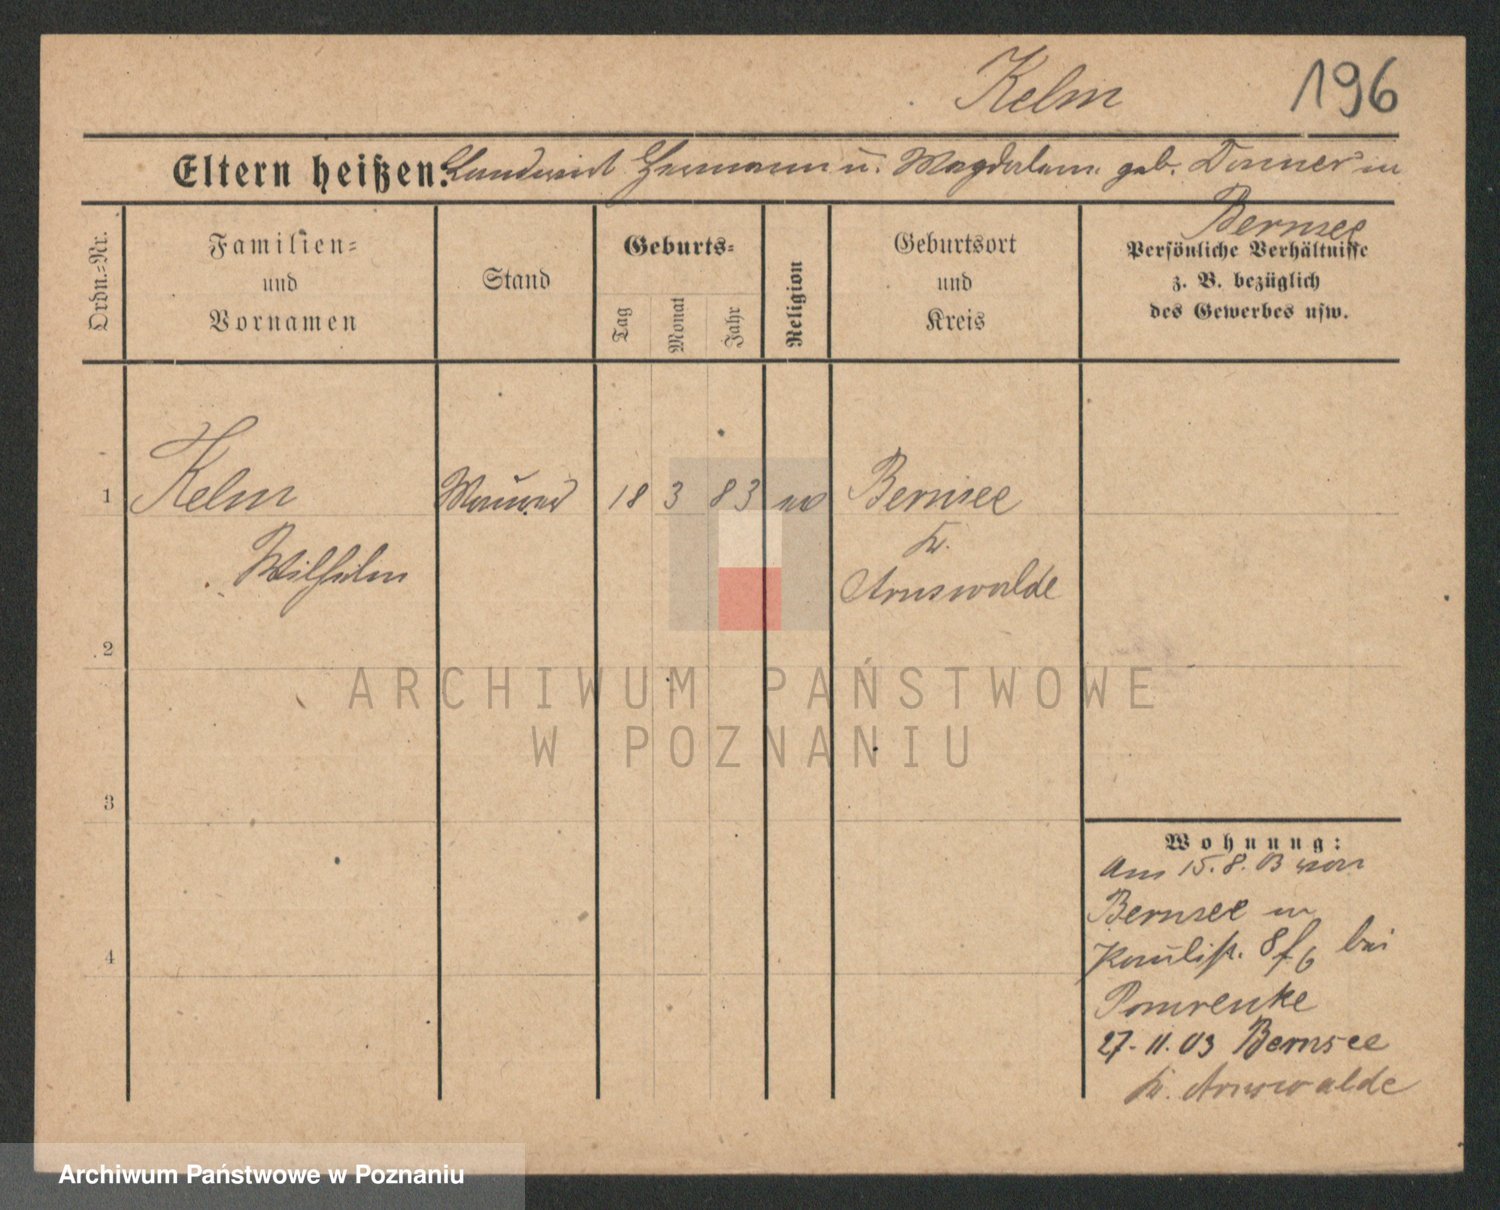 Kelm 196
Eltern heißen: Landwirt Hermann u. Magdalena geb. Donner in
Bernsee
Ordn.=Nr.
Familien=
und
Vornamen
Stand
Geburts=
Tag
Monat
Jahr
Religion
Geburtsort
und
Kreis
Persönliche Verhältnisse
z. B. bezüglich
des Gewerbes usw.
1 Kelm 18 3 83 Bernsee
Wilhelm Kr.
Arnswalde
2
3
4
Wohnung:
Am 15.8.03 von
Bernsee in
Paulist. 8 f 6 bei
Pomrenke
27.11.03 Bernsee
Kr. Arnswalde
ARCHIWUM PAŃSTWOWE
W POZNANIU
Archiwum Państwowe w Poznaniu